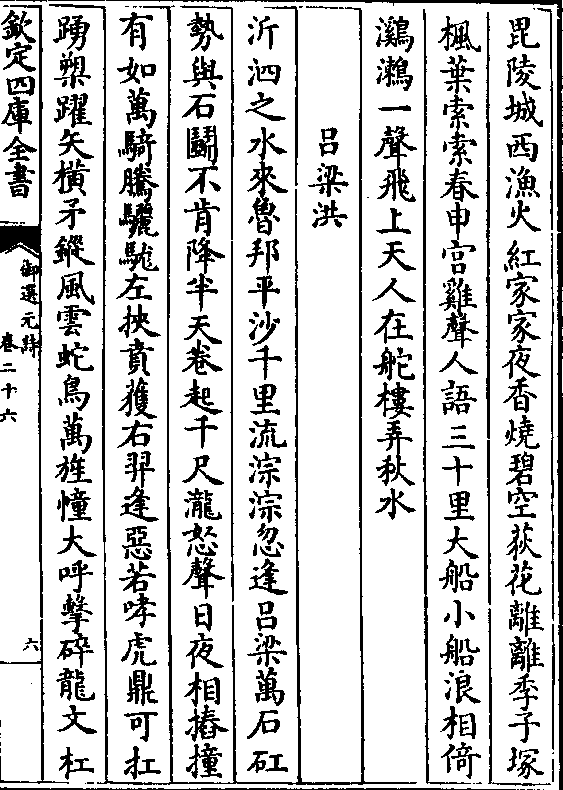 毘陵城西漁火紅家家夜香燒碧空荻花離離季子塚
楓葉索索春申宫雞聲人語三十里大船小船浪相倚
鸂鶒一聲飛上天人在舵樓弄秋水
吕梁洪
沂泗之水來魯邦平沙千里流淙淙忽逢吕梁萬石矼
勢與石鬬不肯降半天卷起千尺瀧怒聲日夜相摏撞
有如萬騎騰驪駹左挾賁獲右羿逄惡若哮虎鼎可扛
踴槊躍矢横矛鏦風雲蛇鳥萬旌幢大呼擊碎龍文杠
欽定四庫全書
御選元詩
卷二十六
六